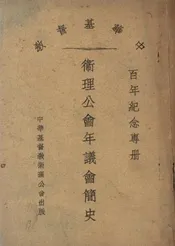 中華基督教
百年紀念專册
衛理公會年議會簡史
中華基督教衛理公會出版